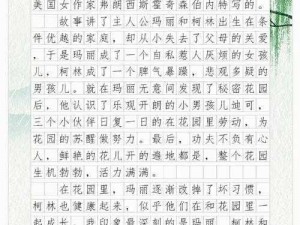 美国女作家弗朗西斯霍奇森伯内特写的。
故事讲了主人公玛丽和柯林出生在条
件优越的家庭,却从小失去了父母的关爱
,于是玛丽成了一个自私惹人厌烦的女孩
儿,柯林成了一个脾气暴躁,悲观多疑的
男孩儿。就在玛丽无意间发现了秘密花园
后,他认识了乐观开朗的小男孩儿迪可,
三个小伙伴日复一日的在花园里劳动,为
花园的苏醒做努力。最后,功夫不负有心
人,鲜艳的花儿开的遍地都是,整个花园
生机勃勃,活力满满。
在花园里,玛丽逐渐改掉了坏习惯,
柯林也健康起来,似乎他们在和花园里一
起成长。我印象最深刻的是玛丽、柯林和